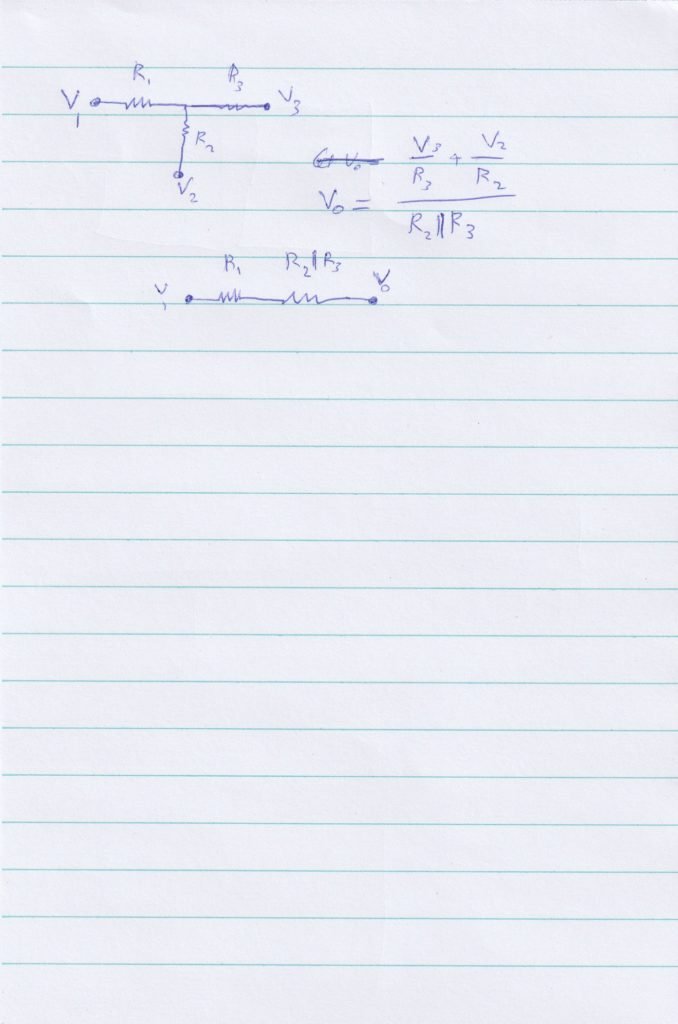 R₁ R₃
V₁ V₃
R₂
V₂
V₃/R₃ + V₂/R₂
V₀ = 
R₂||R₃
R₁ R₂||R₃
V₁ V₀